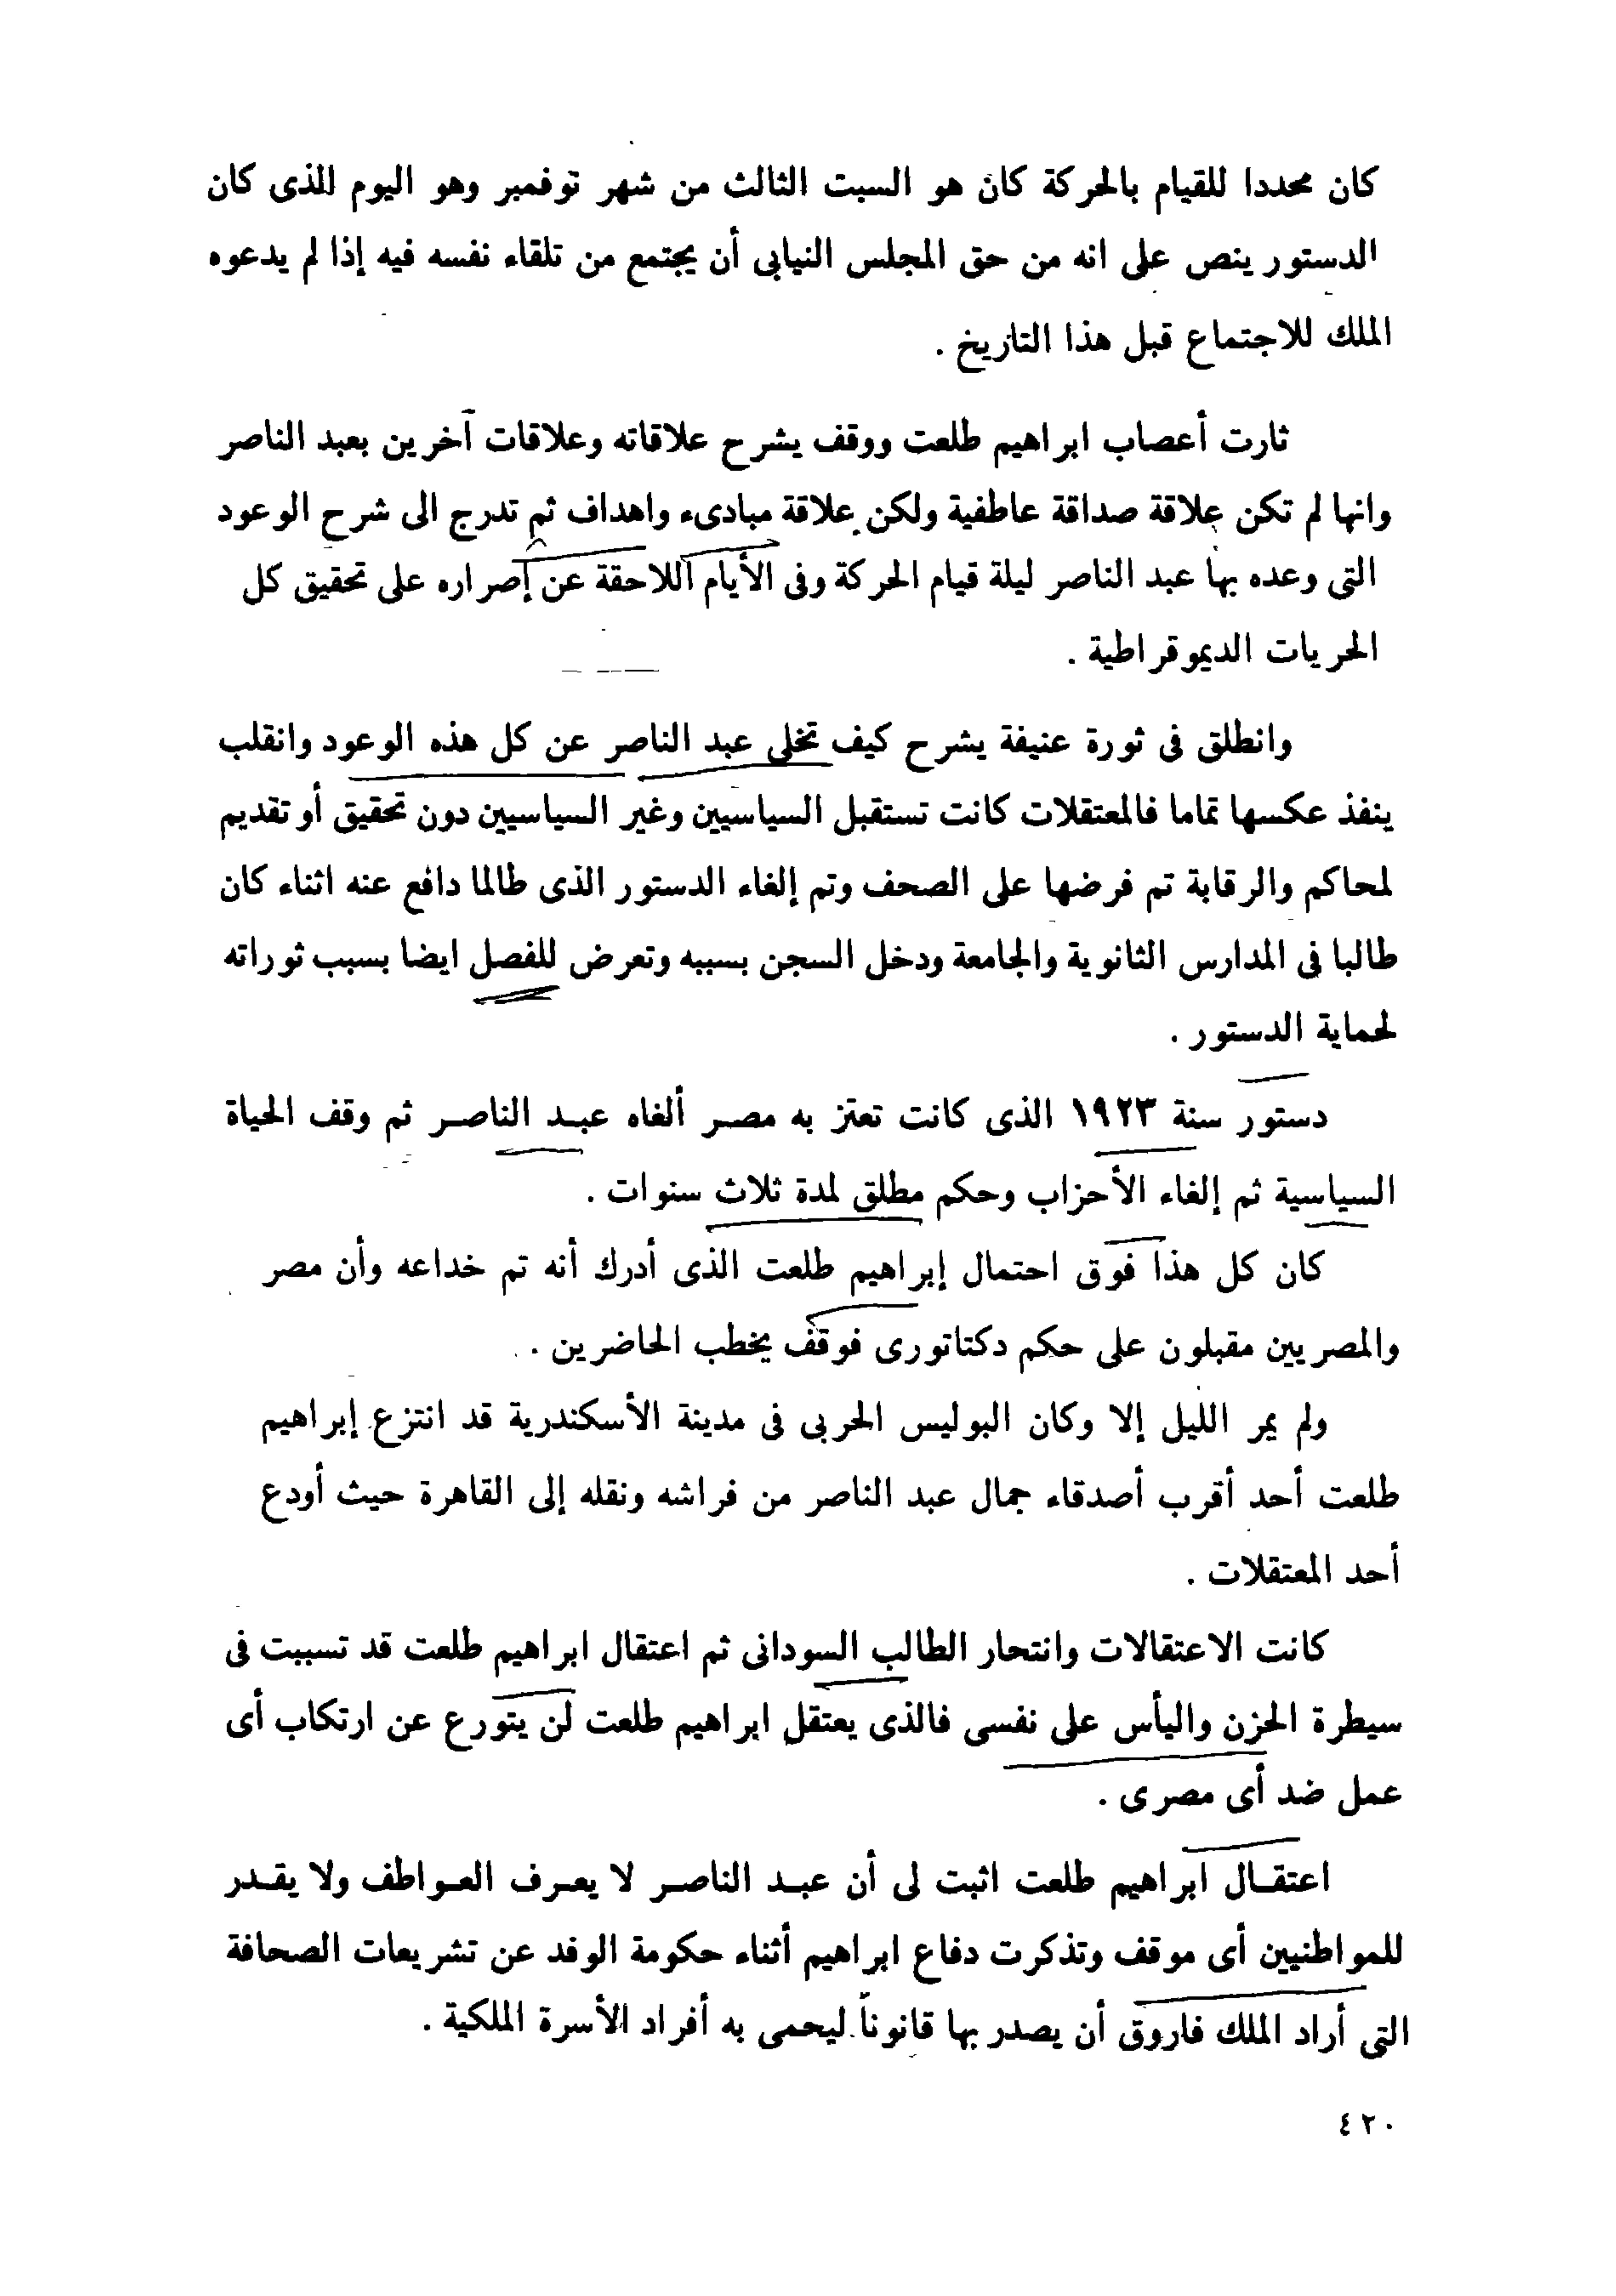 كان محددا للقيام بالحركة كان هو السبت الثالث من شهر نوفمبر وهو اليوم الذى كان
الدستور ينص على انه من حق المجلس النيابى أن يجتمع من تلقاء نفسه فيه إذا لم يدعوه
الملك للاجتماع قبل هذا التاريخ .
ثارت أعصاب ابراهيم طلعت ووقف يشرح علاقاته وعلاقات آخرين بعبد الناصر
وانها لم تكن علاقة صداقة عاطفية ولكن علاقة مبادىء واهداف ثم تدرج الى شرح الوعود
التى وعده بها عبد الناصر ليلة قيام الحركة وفى الأيام اللاحقة عن إصراره على تحقيق كل
الحريات الديموقراطية .
وانطلق فى ثورة عنيفة يشرح كيف تخلى عبد الناصر عن كل هذه الوعود وانقلب
ينفذ عكسها تماما فالمعتقلات كانت تستقبل السياسيين وغير السياسيين دون تحقيق أو تقديم
لمحاكم والرقابة تم فرضها على الصحف وتم إلغاء الدستور الذى طالما دافع عنه اثناء كان
طالبا فى المدارس الثانوية والجامعة ودخل السجن بسببه وتعرض للفصل ايضا بسبب ثوراته
لحماية الدستور .
دستور سنة ١٩٢٣ الذى كانت تعتز به مصر ألغاه عبد الناصر ثم وقف الحياة
السياسية ثم إلغاء الأحزاب وحكم مطلق لمدة ثلاث سنوات .
كان كل هذا فوق احتمال إبراهيم طلعت الذى أدرك أنه تم خداعه وأن مصر
والمصريين مقبلون على حكم دكتاتورى فوقف يخطب الحاضرين .
ولم يمر الليل إلا وكان البوليس الحربى فى مدينة الأسكندرية قد انتزع إبراهيم
طلعت أحد أقرب أصدقاء جمال عبد الناصر من فراشه ونقله إلى القاهرة حيث أودع
أحد المعتقلات .
كانت الاعتقالات وانتحار الطالب السودانى ثم اعتقال ابراهيم طلعت قد تسببت فى
سيطرة الحزن واليأس على نفسى فالذى يعتقل ابراهيم طلعت لن يتورع عن ارتكاب أى
عمل ضد أى مصرى .
اعتقال ابراهيم طلعت اثبت لى أن عبد الناصر لا يعرف العواطف ولا يقدر
للمواطنيين أى موقف وتذكرت دفاع ابراهيم أثناء حكومة الوفد عن تشريعات الصحافة
التى أراد الملك فاروق أن يصدر بها قانوناً ليحمى به أفراد الأسرة الملكية .
٤٢٠